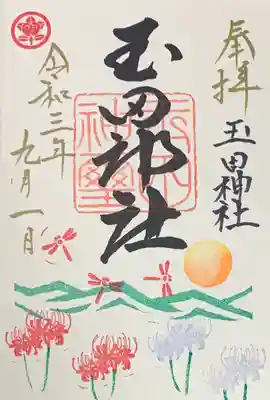 奉拝
玉田神社
玉田神社
令和三年
九月一日